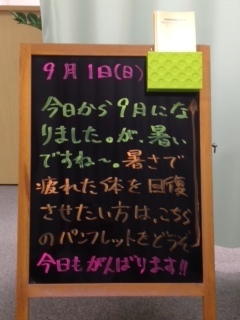 9月1日(日)
今日から9月にな
りました。が、暑い
ですね〜。暑さで
疲れた体を回復
させたい方は、こちら
のパンフレットをどうぞ
今日もがんばります!!